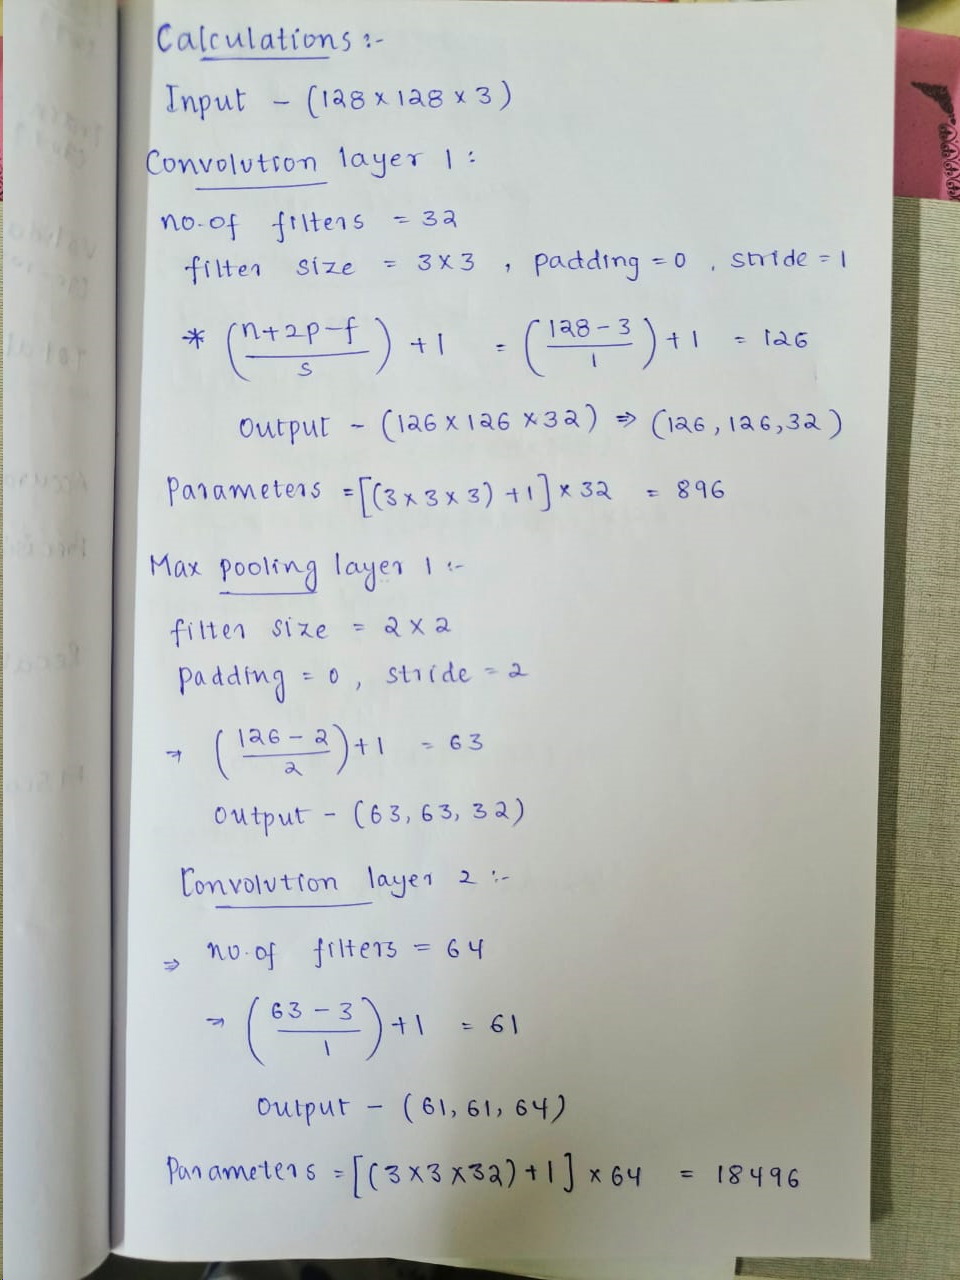 Calculations :-
Input - (128 x 128 x 3)
Convolution layer 1 :
no.of filters = 32
filter size = 3 x 3 , padding = 0 , stride = 1
* ((n+2p-f)/s) + 1 = ((128-3)/1) + 1 = 126
Output - (126 x 126 x 32) ⇒ (126, 126, 32)
Parameters = [(3 x 3 x 3) + 1] x 32 = 896
Max pooling layer 1 :-
filter size = 2 x 2
padding = 0 , stride = 2
→ ((126 - 2)/2) + 1 = 63
Output - (63, 63, 32)
Convolution layer 2 :-
⇒ no.of filters = 64
→ ((63 - 3)/1) + 1 = 61
Output - (61, 61, 64)
Parameters = [(3 x 3 x 32) + 1] x 64 = 18496